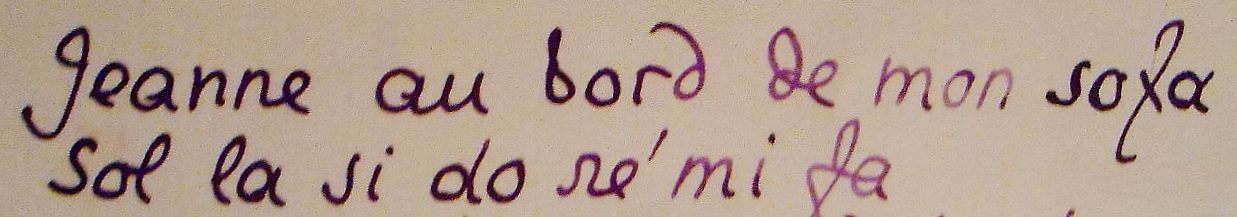 Jeanne au bord de mon sofa
Sol la si do ré mi fa